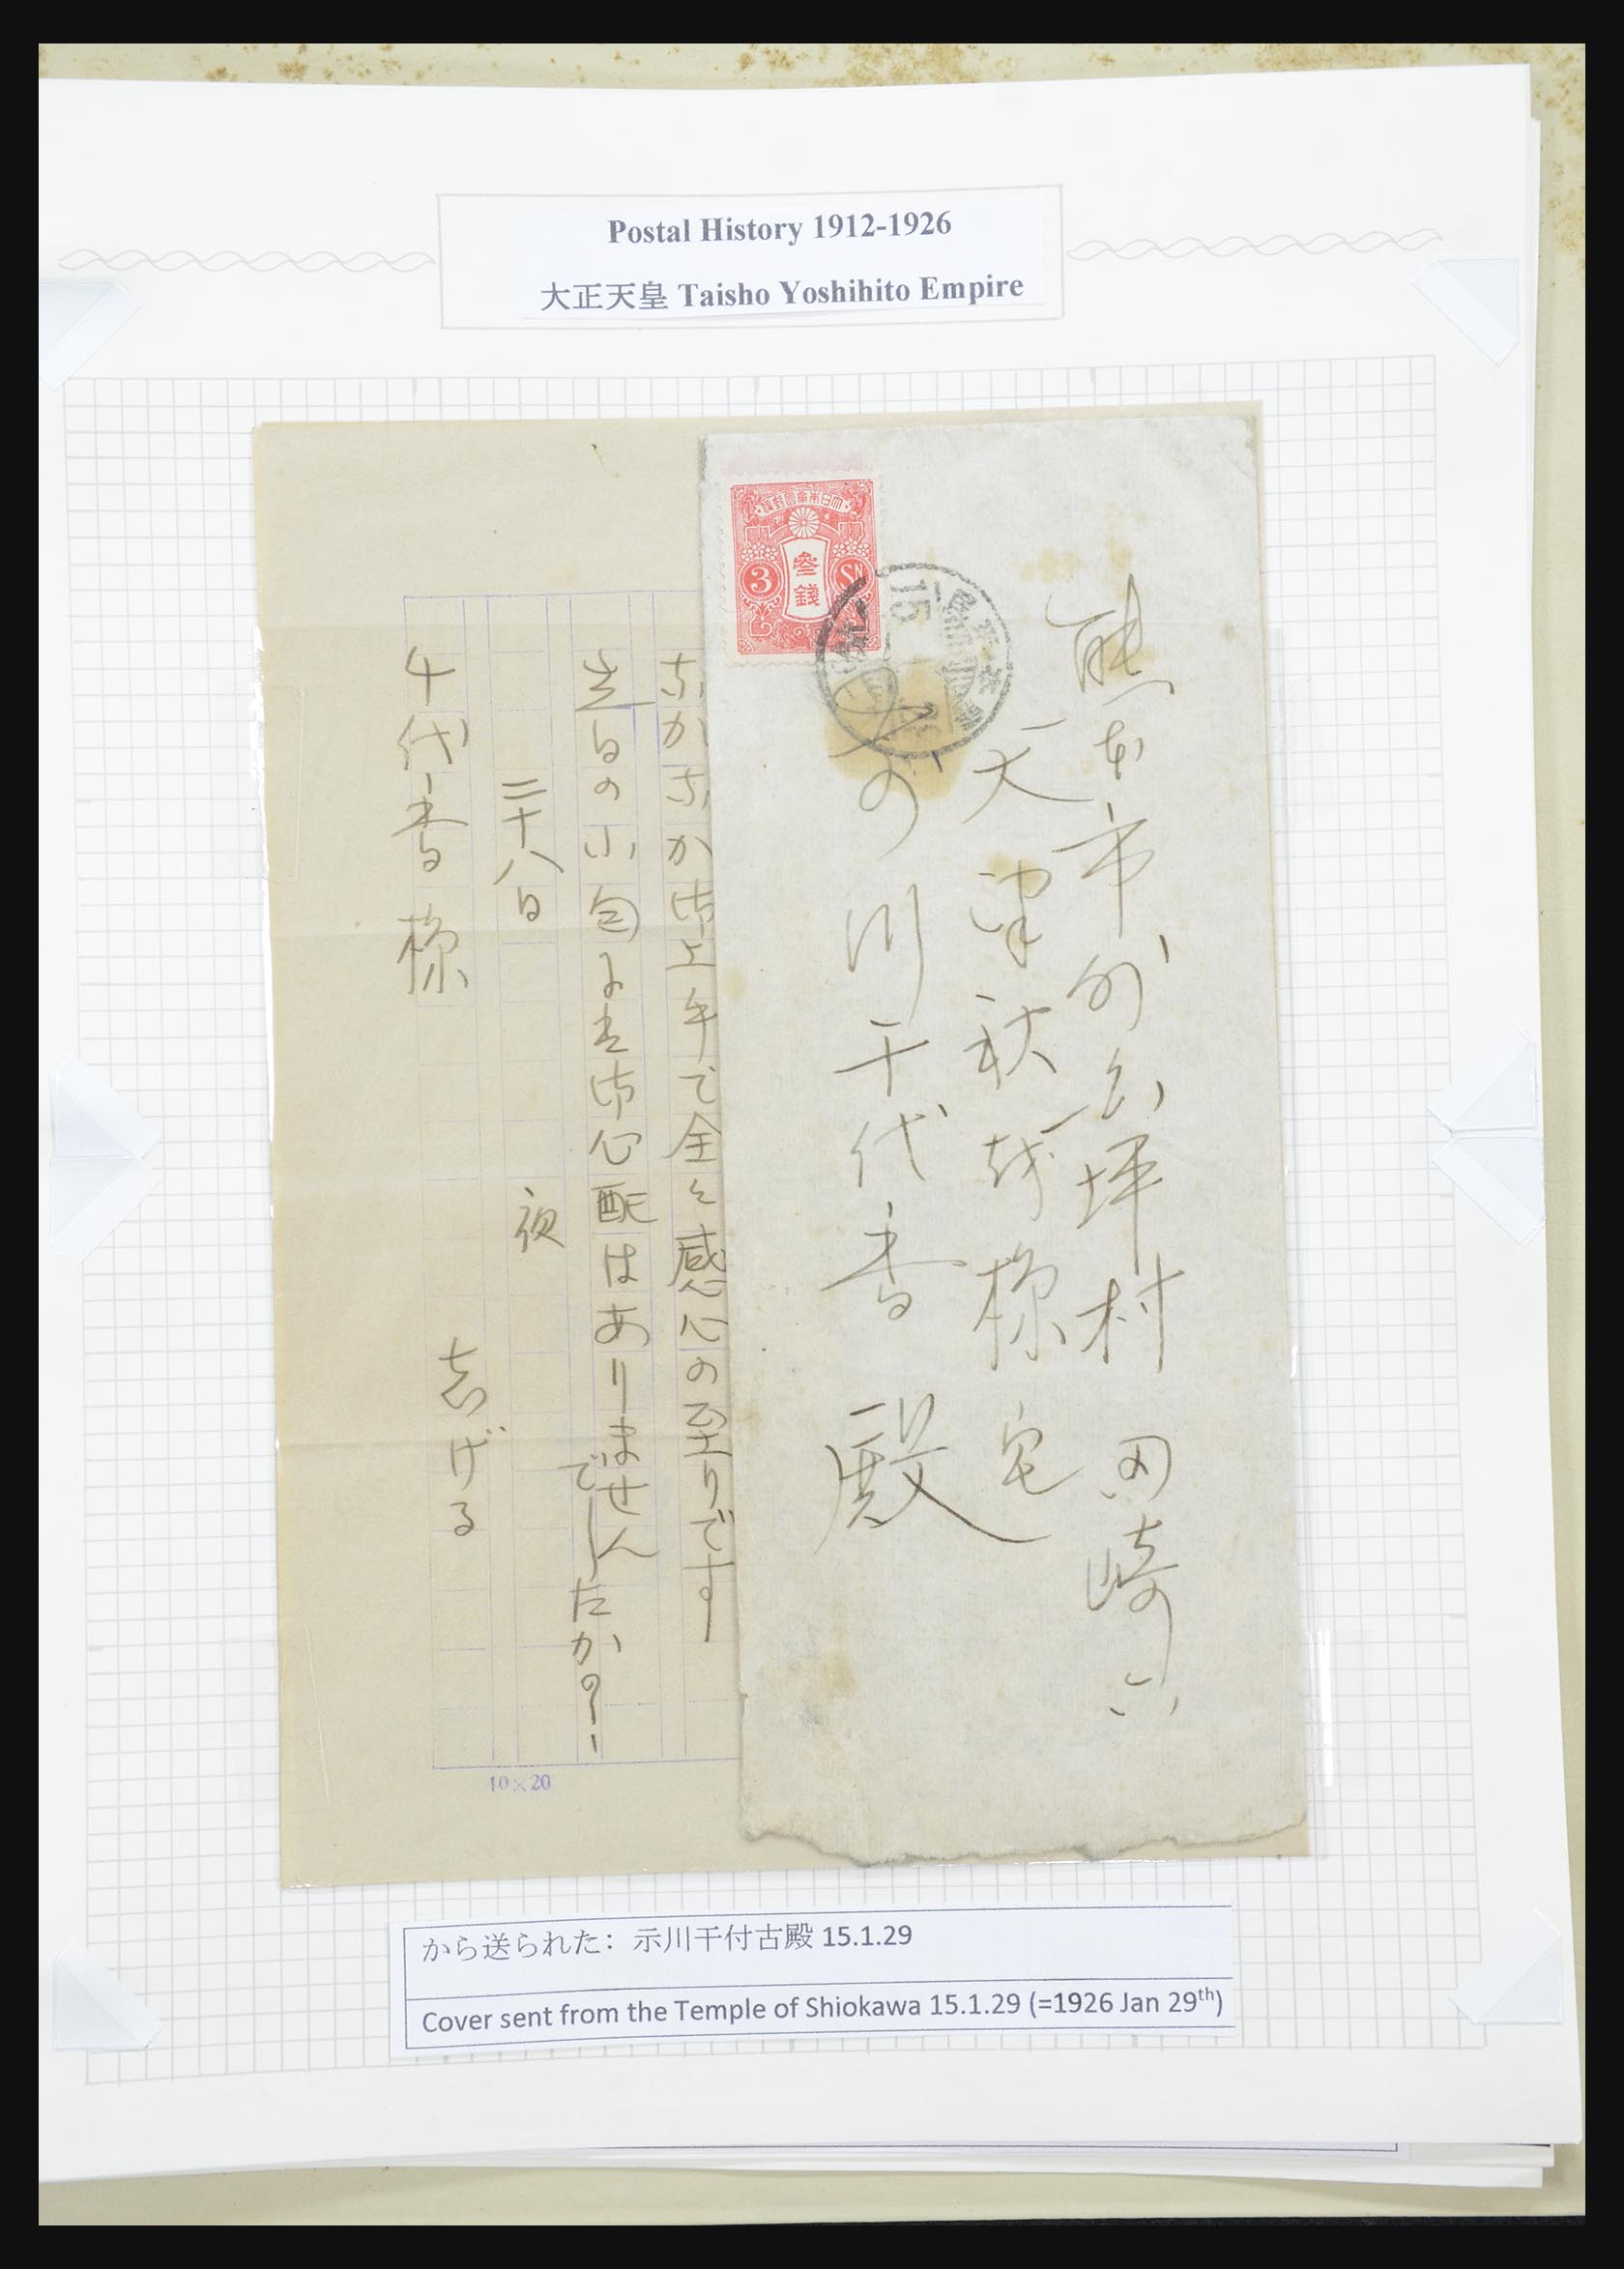 Postal History 1912-1926
大正天皇 Taisho Yoshihito Empire
大日本帝國郵便
參錢
3
SN
15
熊本市外 坪村 田崎
天津秋越様宅
川千代香殿
なかなか御上手で全く感心の至りです
当日の小包は御心配はありません
でしたか?
二十八日 夜
志げる
千代香様
10×20
から送られた: 示川干付古殿 15.1.29
Cover sent from the Temple of Shiokawa 15.1.29 (=1926 Jan 29th)